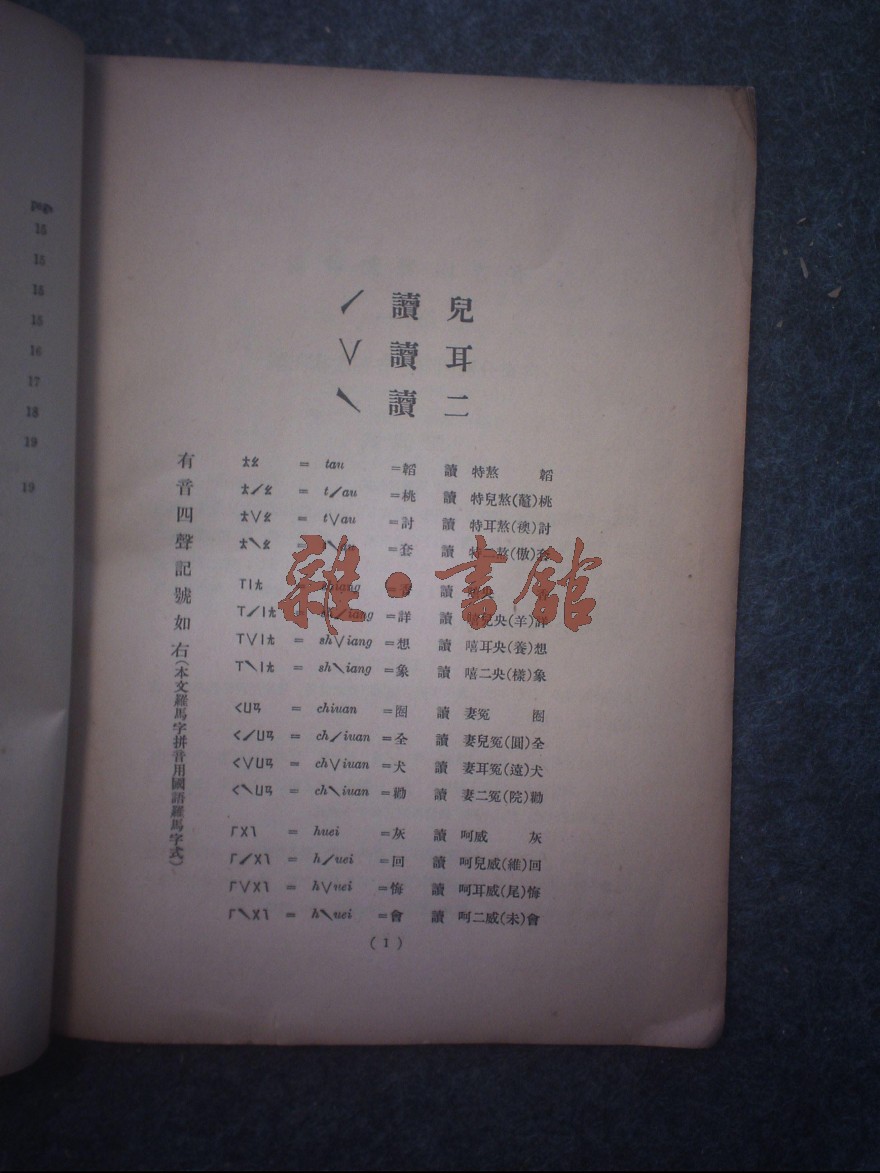 page
15
15
15
15
16
17
18
19
19
兒讀ˊ
耳讀ˇ
二讀ˋ
有音四聲記號如右(本文羅馬字拼音用國語羅馬字式)
ㄊㄠ = tau =韜 讀 特熬 韜
ㄊˊㄠ = tˊau =桃 讀 特兒熬(鼇)桃
ㄊˇㄠ = tˇau =討 讀 特耳熬(襖)討
ㄊˋㄠ = =套 讀 特二熬(傲)套
ㄒㄧㄤ = 讀 央
ㄒˊㄧㄤ = iang =詳 讀 兒央(羊)詳
ㄒˇㄧㄤ = shˇiang =想 讀 嘻耳央(養)想
ㄒˋㄧㄤ = shˋiang =象 讀 嘻二央(樣)象
ㄑㄩㄢ = chiuan =圈 讀 妻冤 圈
ㄑˊㄩㄢ = chˊiuan =全 讀 妻兒冤(圓)全
ㄑˇㄩㄢ = chˇiuan =犬 讀 妻耳冤(遠)犬
ㄑˋㄩㄢ = chˋiuan =勸 讀 妻二冤(院)勸
ㄏㄨㄟ = huei =灰 讀 呵威 灰
ㄏˊㄨㄟ = hˊuei =回 讀 呵兒威(維)回
ㄏˇㄨㄟ = hˇuei =悔 讀 呵耳威(尾)悔
ㄏˋㄨㄟ = hˋuei =會 讀 呵二威(未)會
(1)
雜·書館